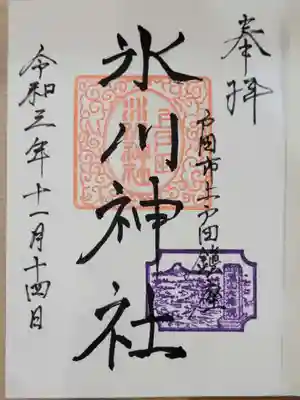 奉拝
戸田市上戸田鎮座
氷川神社
令和三年十一月十四日